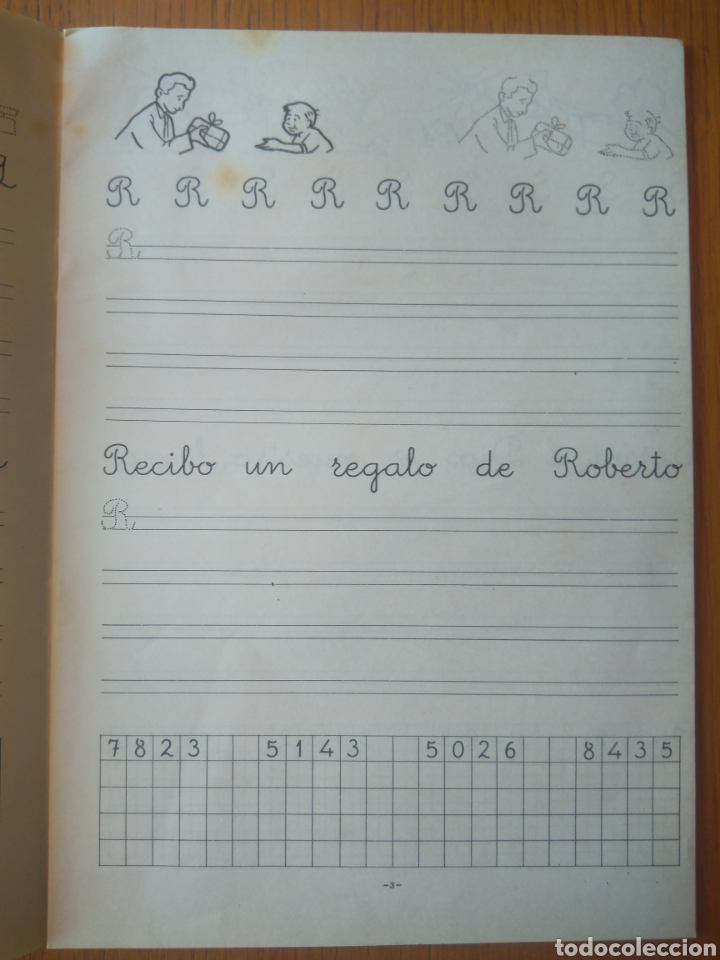 R R R R R R R R R
R
Recibo un regalo de Roberto
R
7 8 2 3 5 1 4 3 5 0 2 6 8 4 3 5
-3-
todocoleccion